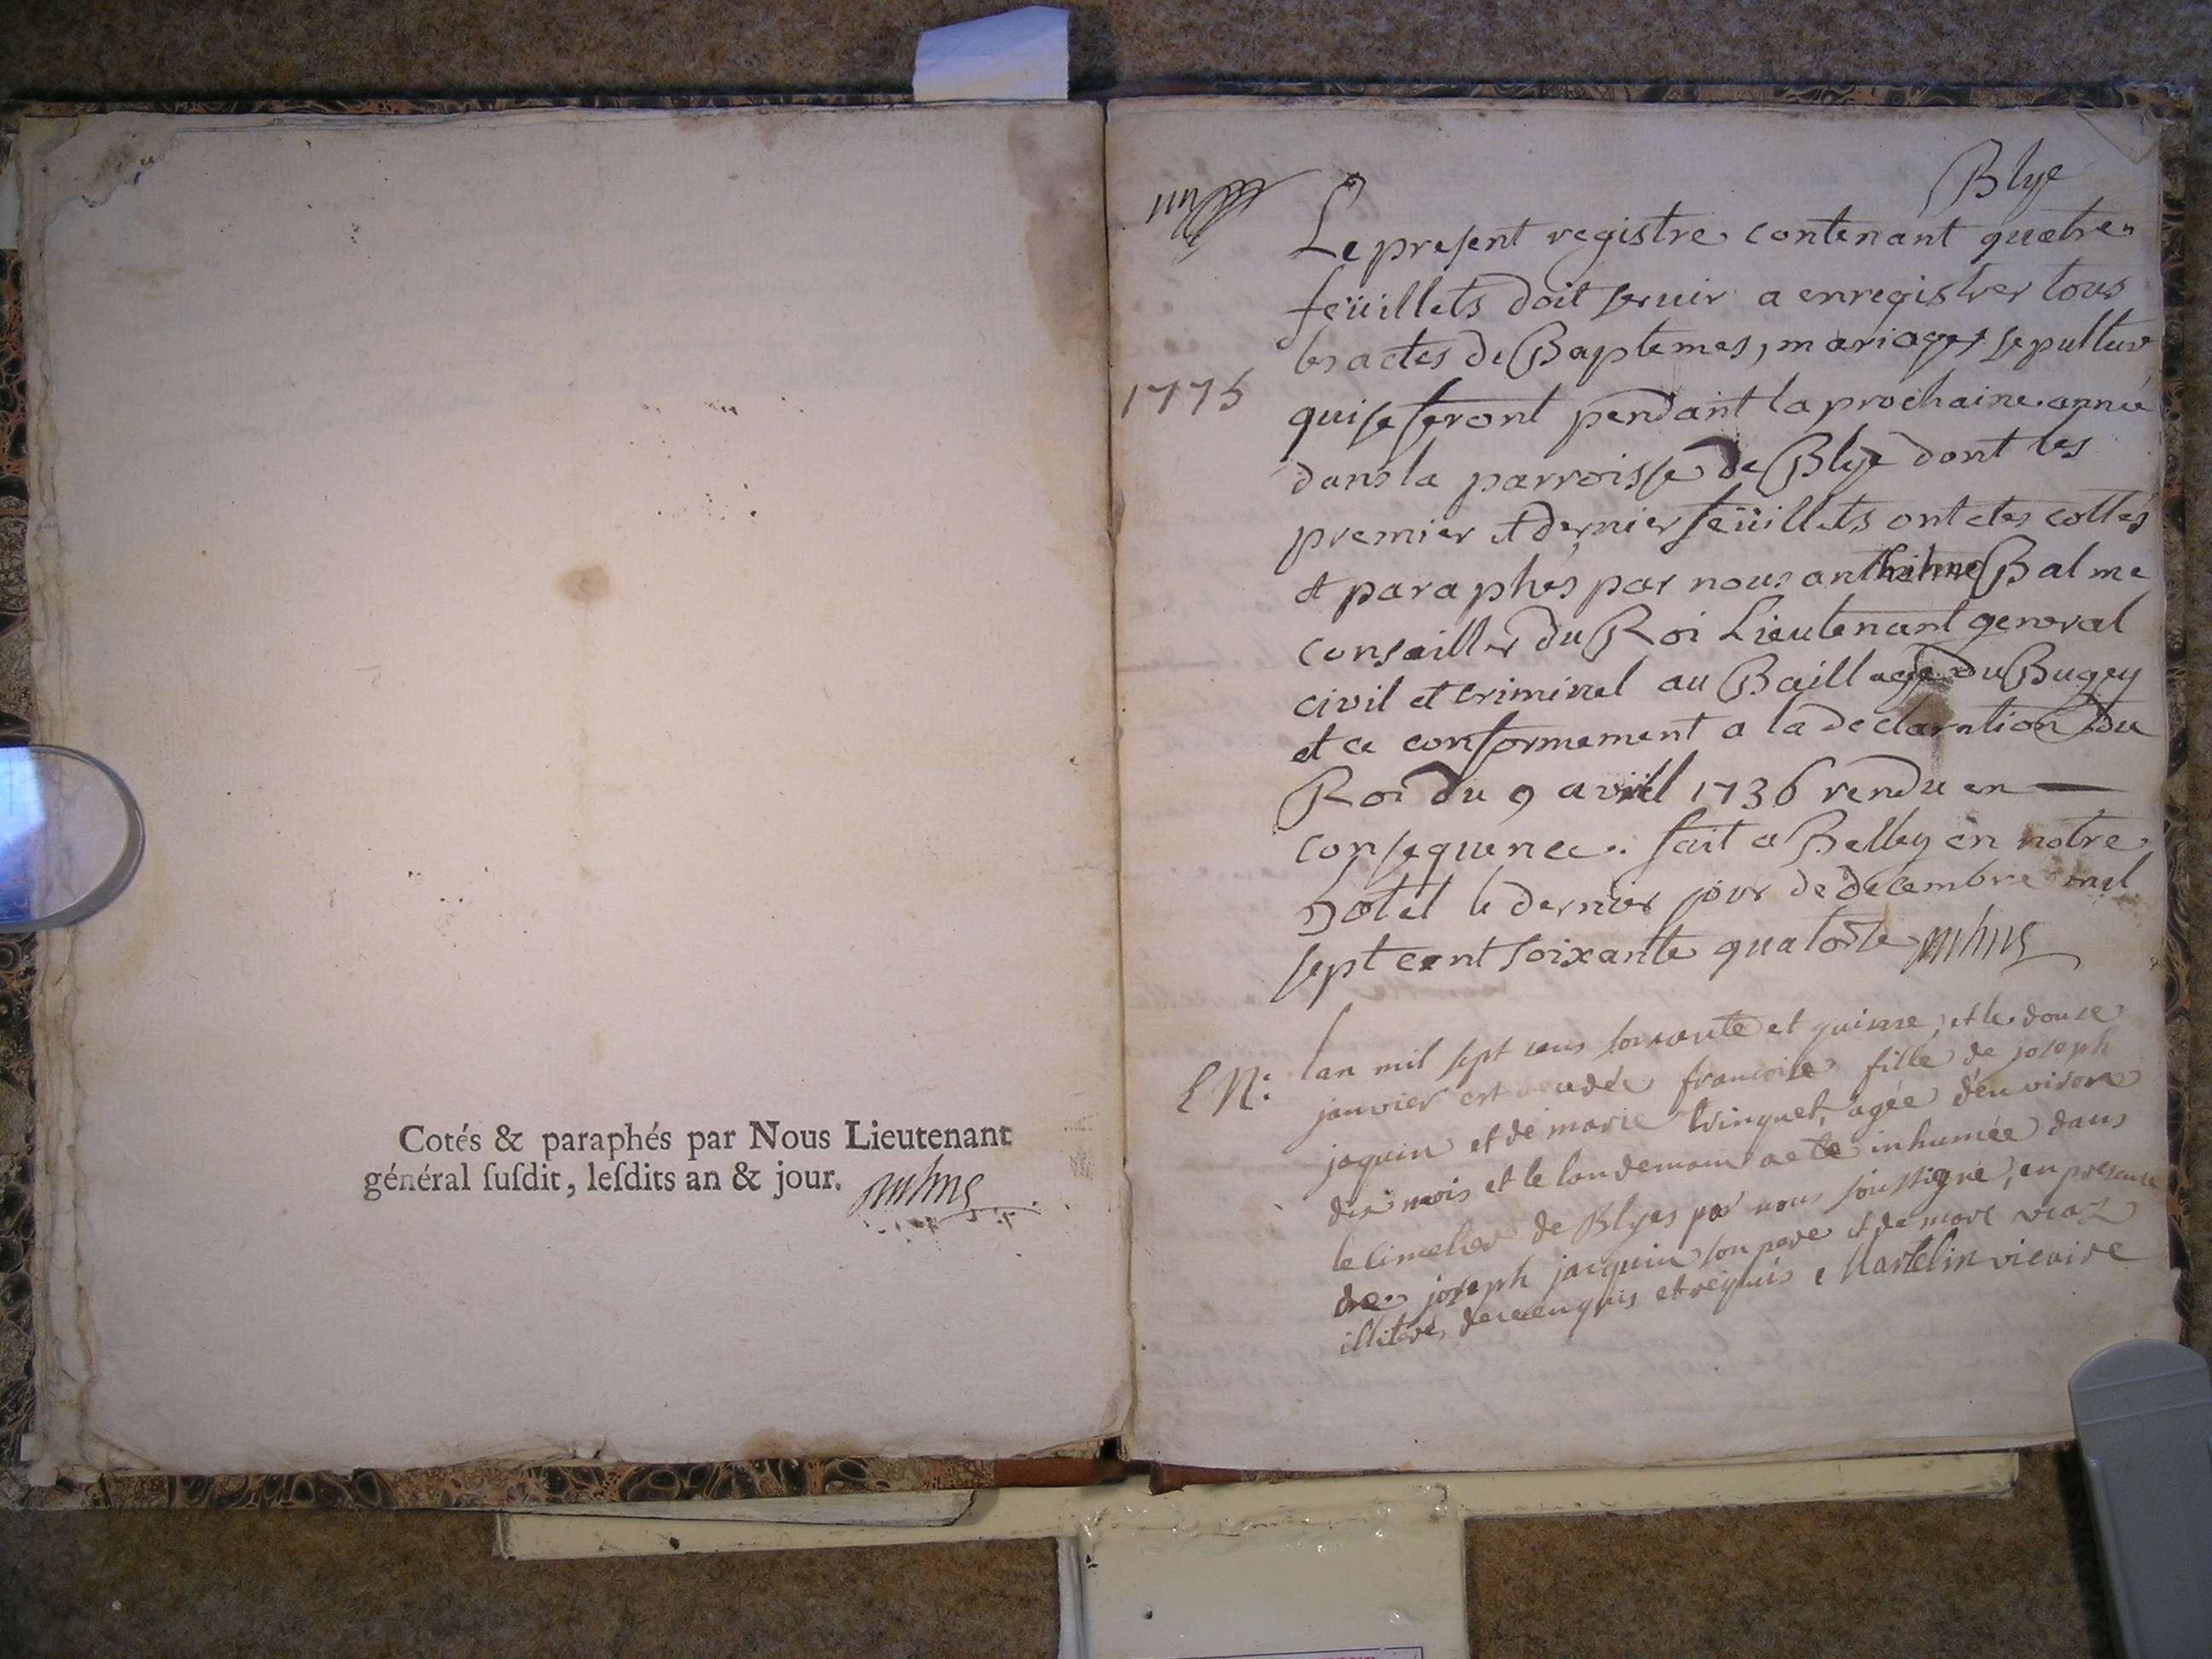 Cotés & paraphés par Nous Lieutenant
général ſuſdit, leſdits an & jour.
Blye
Le present registre contenant quatre
feüillets doit servir a enregistrer tous
les actes de Baptemes, mariages sepulture
1775
qui se feront pendant la prochaine année
dans la parroisse de Blye dont les
premier et dernier feüillets ont etes cottés
et paraphés par nous anthelme Balme
conseiller du Roi Lieutenant general
civil et criminel au Baillage du Bugey
et ce conformement a la declaration du
Roi du 9 avril 1736 rendu en
consequence. fait a Belley en notre
hotel le dernier jour de decembre mil
sept cent soixante quatorze
lan mil sept cens soixante et quinze, et le douze
janvier est decedée francoise fille de joseph
jaquin et de marie trinquet, agée d'environ
dix mois et le landemain a eté inhumée dans
le cimetiere de Blyes par nous soussigné, en presence
de joseph jacquin son pere et de marc
illiterés de ce enquis et requis Martelin vicaire